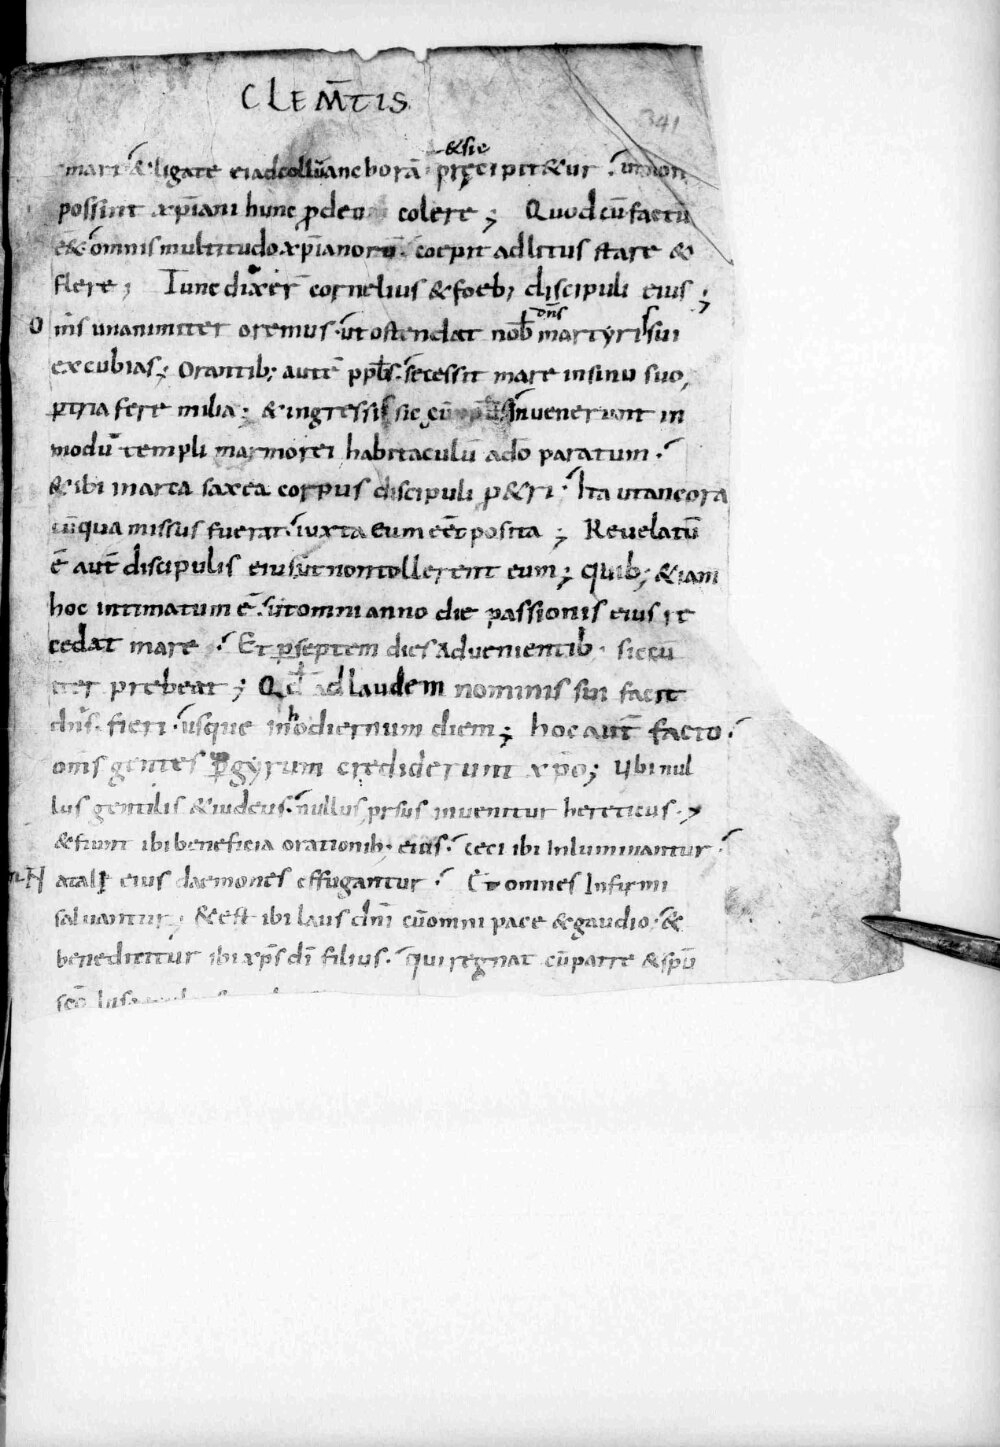 CLEM̄TIS
341
&sic
mari & ligate ei ad collū anchorā pręcipit&ur ut non
possint xp̄iani hunc p̄ deo colere; Quod cū factū
ē& omnis multitudo xp̄ianorū. coepit ad litus stare &
flere; Tunc dixer̄ cornelius & foeb; discipuli eius;
O
ms unanimiter oremus. ut ostendat nob̄ martyris sui
dn̄s
excubias; Orantib; autē pp̄lis. secessit mare in sinu suo,
p̱ tria fere milia; & ingressi sic cū inuenerunt in
modū templi marmorei habitaculū a dō paratum.
& ibi in arca saxea corpus discipuli p&ri; Ita ut ancora
cū qua missus fuerat. iuxta eum eēt posita; Reuelatū
ē aut̄ discipulis eius ut non tollerent eum; quib; & iam
hoc intimatum ē. ut omni anno die passionis eius re
cedat mare. Et p̱ septem dies aduenientib. siccū
iter prebeat; Qd̄ ad laudem nominis sui facit
dn̄s. fieri. usque in hodiernum diem; hoc aut̄ facto.
om̄s gentes p̱ gyrum crediderunt xp̄o; Ubi nul
lus gentilis & iudeus. nullus prsus inuenitur hereticus.
& fiunt ibi beneficia orationib; eius. ceci ibi Inluminantur.
N
atalis eius daemones effugantur. Et omnes Infirmi
saluantur; & est ibi laus dn̄i cū omni pace & gaudio. &
benedicitur ibi xp̄s dī filius. qui regnat cū patre & sp̄u
sc̄o